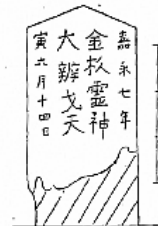 嘉永七年
金杉霊神
大辨戈天
寅六月十四日